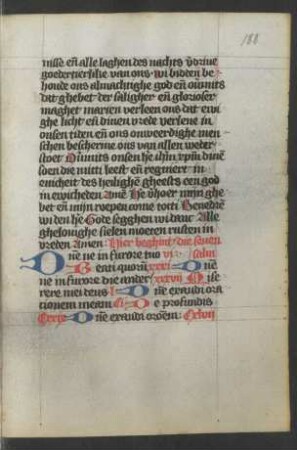 188
nisse en̄ alle laghen des nachts v̄driue
goedertierlike van ons wi bidden be
houde ons almachtighe god en̄ om̄its
dat ghebet der saligher en̄ glorioser
maghet marien verleen ons dat ewi
ghe licht en̄ dinen vrede verlene in
onsen tiden en̄ ons onweerdighe men
schen bescherme ons van allen weder
stoet Om̄its onsen he ih̄m xpm̄ dinē
soen die mitti leeft en̄ regniert in
enicheit des heilighē gheests een god
in ewicheden Amē He v̄hoer mijn ghe
bet en̄ mijn roepen come totti Benediē
wi den he Gode segghen wi danc Alle
ghelouighe sielen moeten rusten in
vreden Amen Hier beghint die seuen
Dn̄e ne in furore p̄io vi salm
Beati quorū xxxi Dn̄e
ne in furore die ander xxxvii Mise
rere mei deus l Dn̄e exaudi ora
tionem meam ci De profundis
Cxxix Dn̄e exaudi oroem Cxlvii